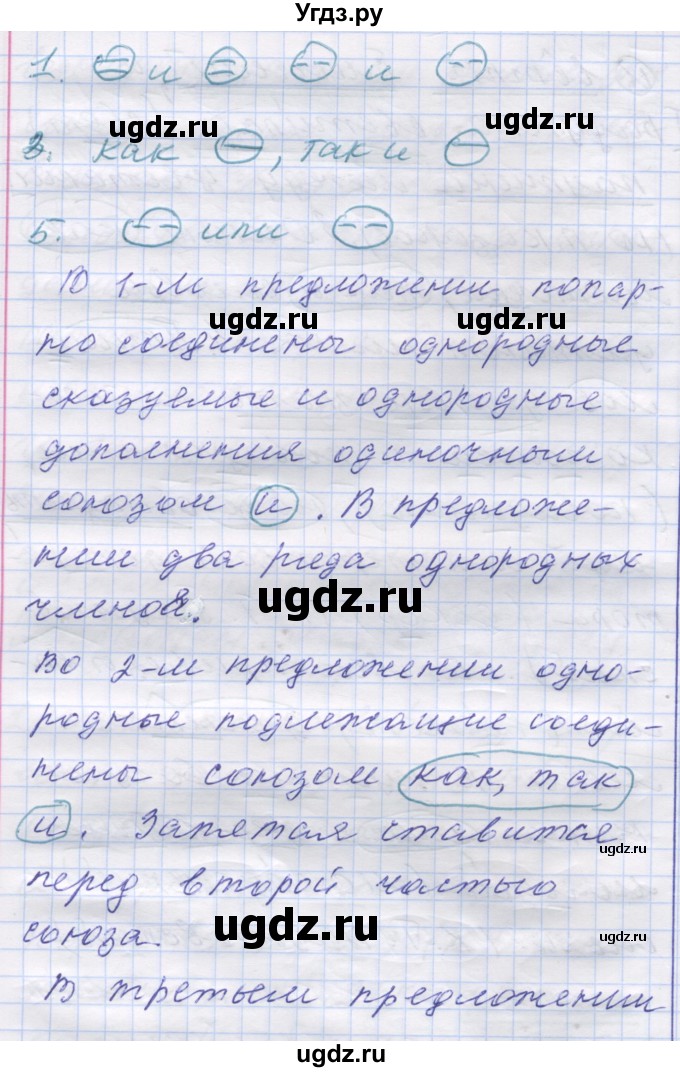 Угдз.ру
1. и и
ugdz.ru ugdz.ru
3. как , так и
5. или
В 1-м предложении попар-
ugdz.ru ugdz.ru
но соединены однородные
сказуемые и однородные
дополнения одиночным
союзом и. В предложе-
нии два ряда однородных
ugdz.ru
членов.
Во 2-м предложении одно-
родные подлежащие соеди-
нены союзом как, так
и. Запятая ставится
ugdz.ru
перед второй частью
ugdz.ru
союза.
ugdz.ru
В третьем предложении
ugdz.ru